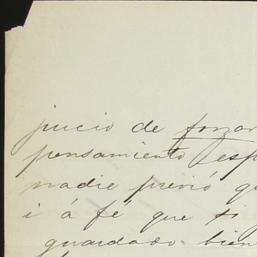 juicio de forzar
pensamiento esp
nadie previó qu
i á fé que si
guardado bien